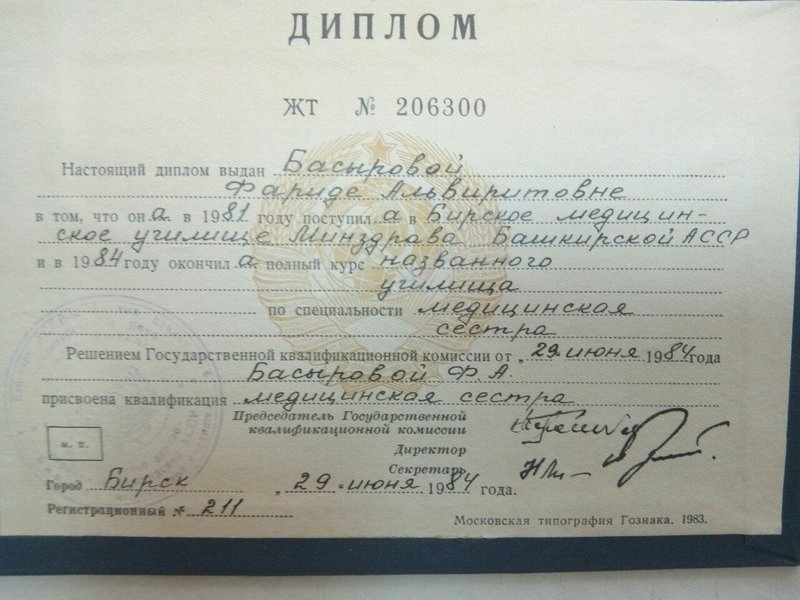 ДИПЛОМ
ЖТ № 206300
Настоящий диплом выдан Басыровой
Фариде Альвиритовне
в том, что он а в 1981 году поступил а в Бирское медицин-
ское училище Минздрава Башкирской АССР
и в 1984 году окончил а полный курс названного
училища
по специальности медицинская
сестра
Решением Государственной квалификационной комиссии от „29" июня 1984 года
Басыровой Ф.А.
присвоена квалификация медицинская сестра
Председатель Государственной
квалификационной комиссии
Директор
Секретарь
м. п.
Город Бирск „29" июня 1984 года.
Регистрационный № 211
Московская типография Гознака. 1983.